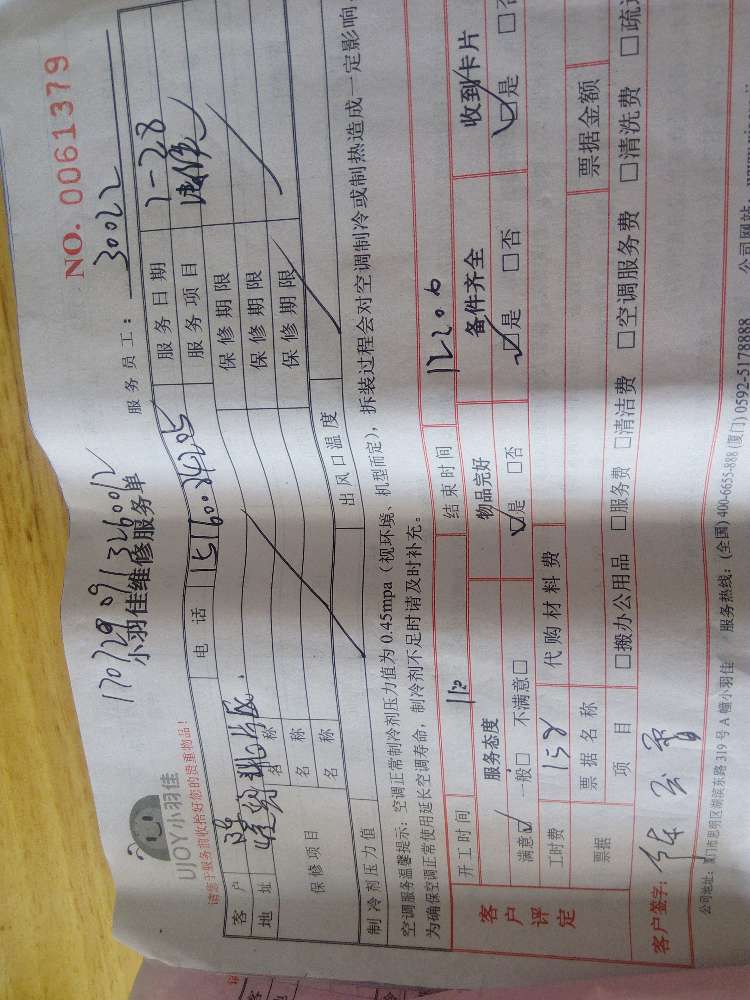 NO. 0061379
1707290913260012
UJOY小羽佳
小羽佳维修服务单
服务员工: 30022
请您于服务前收拾好您的贵重物品!
客户 电话 15160024205 服务日期 7-28
地址 服务项目
名称 保修期限
保修项目 名称 保修期限
名称 保修期限
制冷剂压力值 出风口温度
空调服务温馨提示:空调正常制冷剂压力值为0.45mpa(视环境、机型而定),拆装过程会对空调制冷或制热造成一定影响,
为确保空调正常使用延长空调寿命,制冷剂不足时请及时补充。
开工时间 结束时间
客户评定 服务态度 物品完好 备件齐全 收到卡片
满意☑ 一般□ 不满意□ ☑是 □否 ☑是 □否 ☑是 □否
工时费 158 代购材料费
票据 票据名称 票据金额
项目 □搬办公用品 □服务费 □清洁费 □空调服务费 □清洗费
客户签字:
公司地址:厦门市思明区湖滨东路319号A幢小羽佳 服务热线:(全国)400-6655-888(厦门)0592-5178888 公司网站: